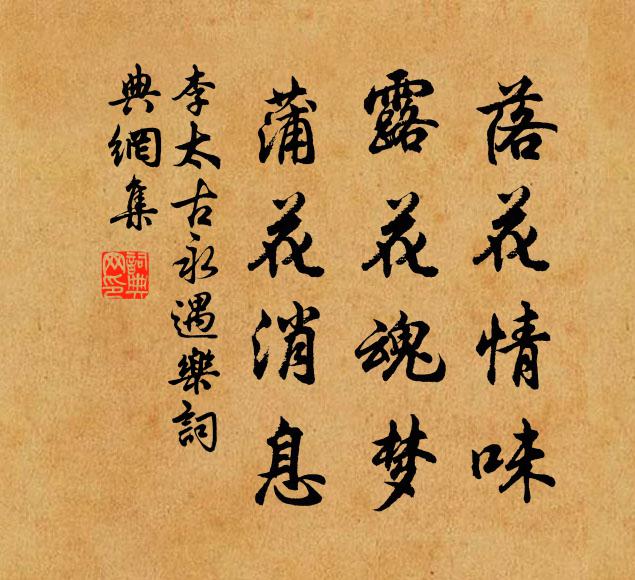 落花情味
露花魂梦
蒲花消息
李太古永遇樂詞
典網集
詞典網印